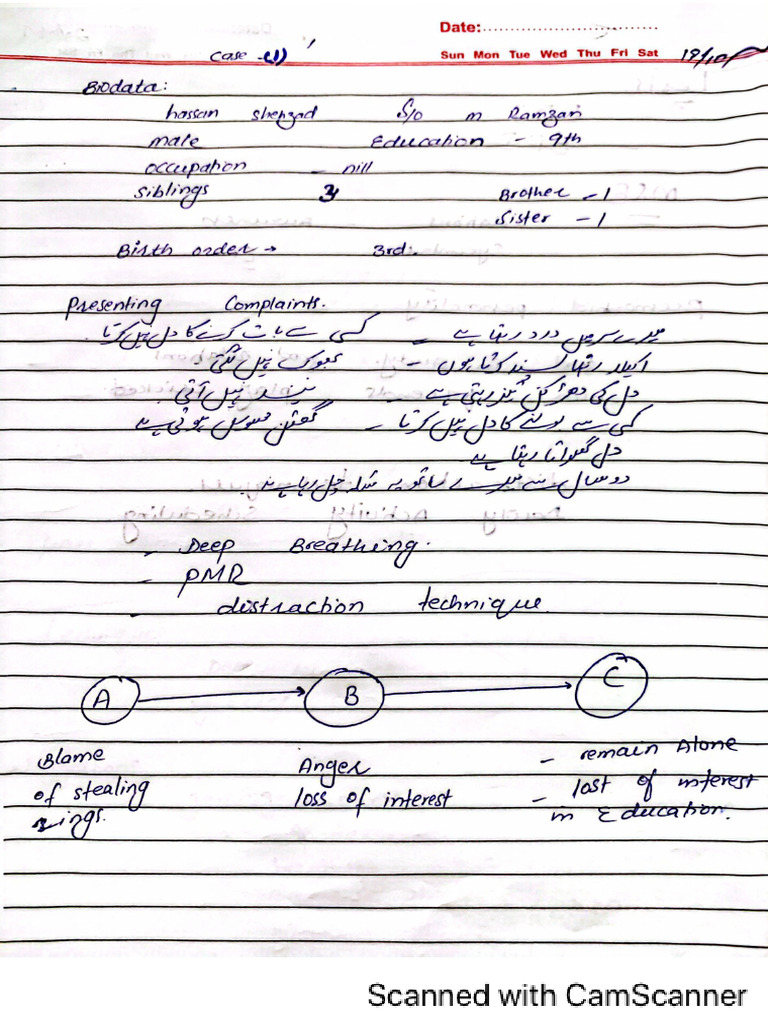 Date:
Case -(1)
Sun Mon Tue Wed Thu Fri Sat 19/10/
Biodata:
hassan shehzad S/o m Ramzan
male Education - 9th
occupation - nill
siblings 3 Brother - 1
Sister - 1
Birth order → 3rd.
Presenting Complaints.
میرے سر میں درد رہتا ہے - کسی سے بات کرنے کا دل نہیں کرتا
اکیلا رہنا پسند کرتا ہوں - بھوک نہیں لگتی۔
دل کی دھڑکن تیز رہتی ہے - نیند نہیں آتی۔
کسی سے بولنے کا دل نہیں کرتا - گھٹن محسوس ہوتی ہے
دل گھبراتا رہتا ہے۔
دو سال سے میرے ساتھ یہ مسئلہ چل رہا ہے۔
- Deep Breathing.
- PMR
distraction technique.
A → B → C
Blame of stealing rings.
Anger
loss of interest
- remain Alone
- lost of interest
in Education.
Scanned with CamScanner